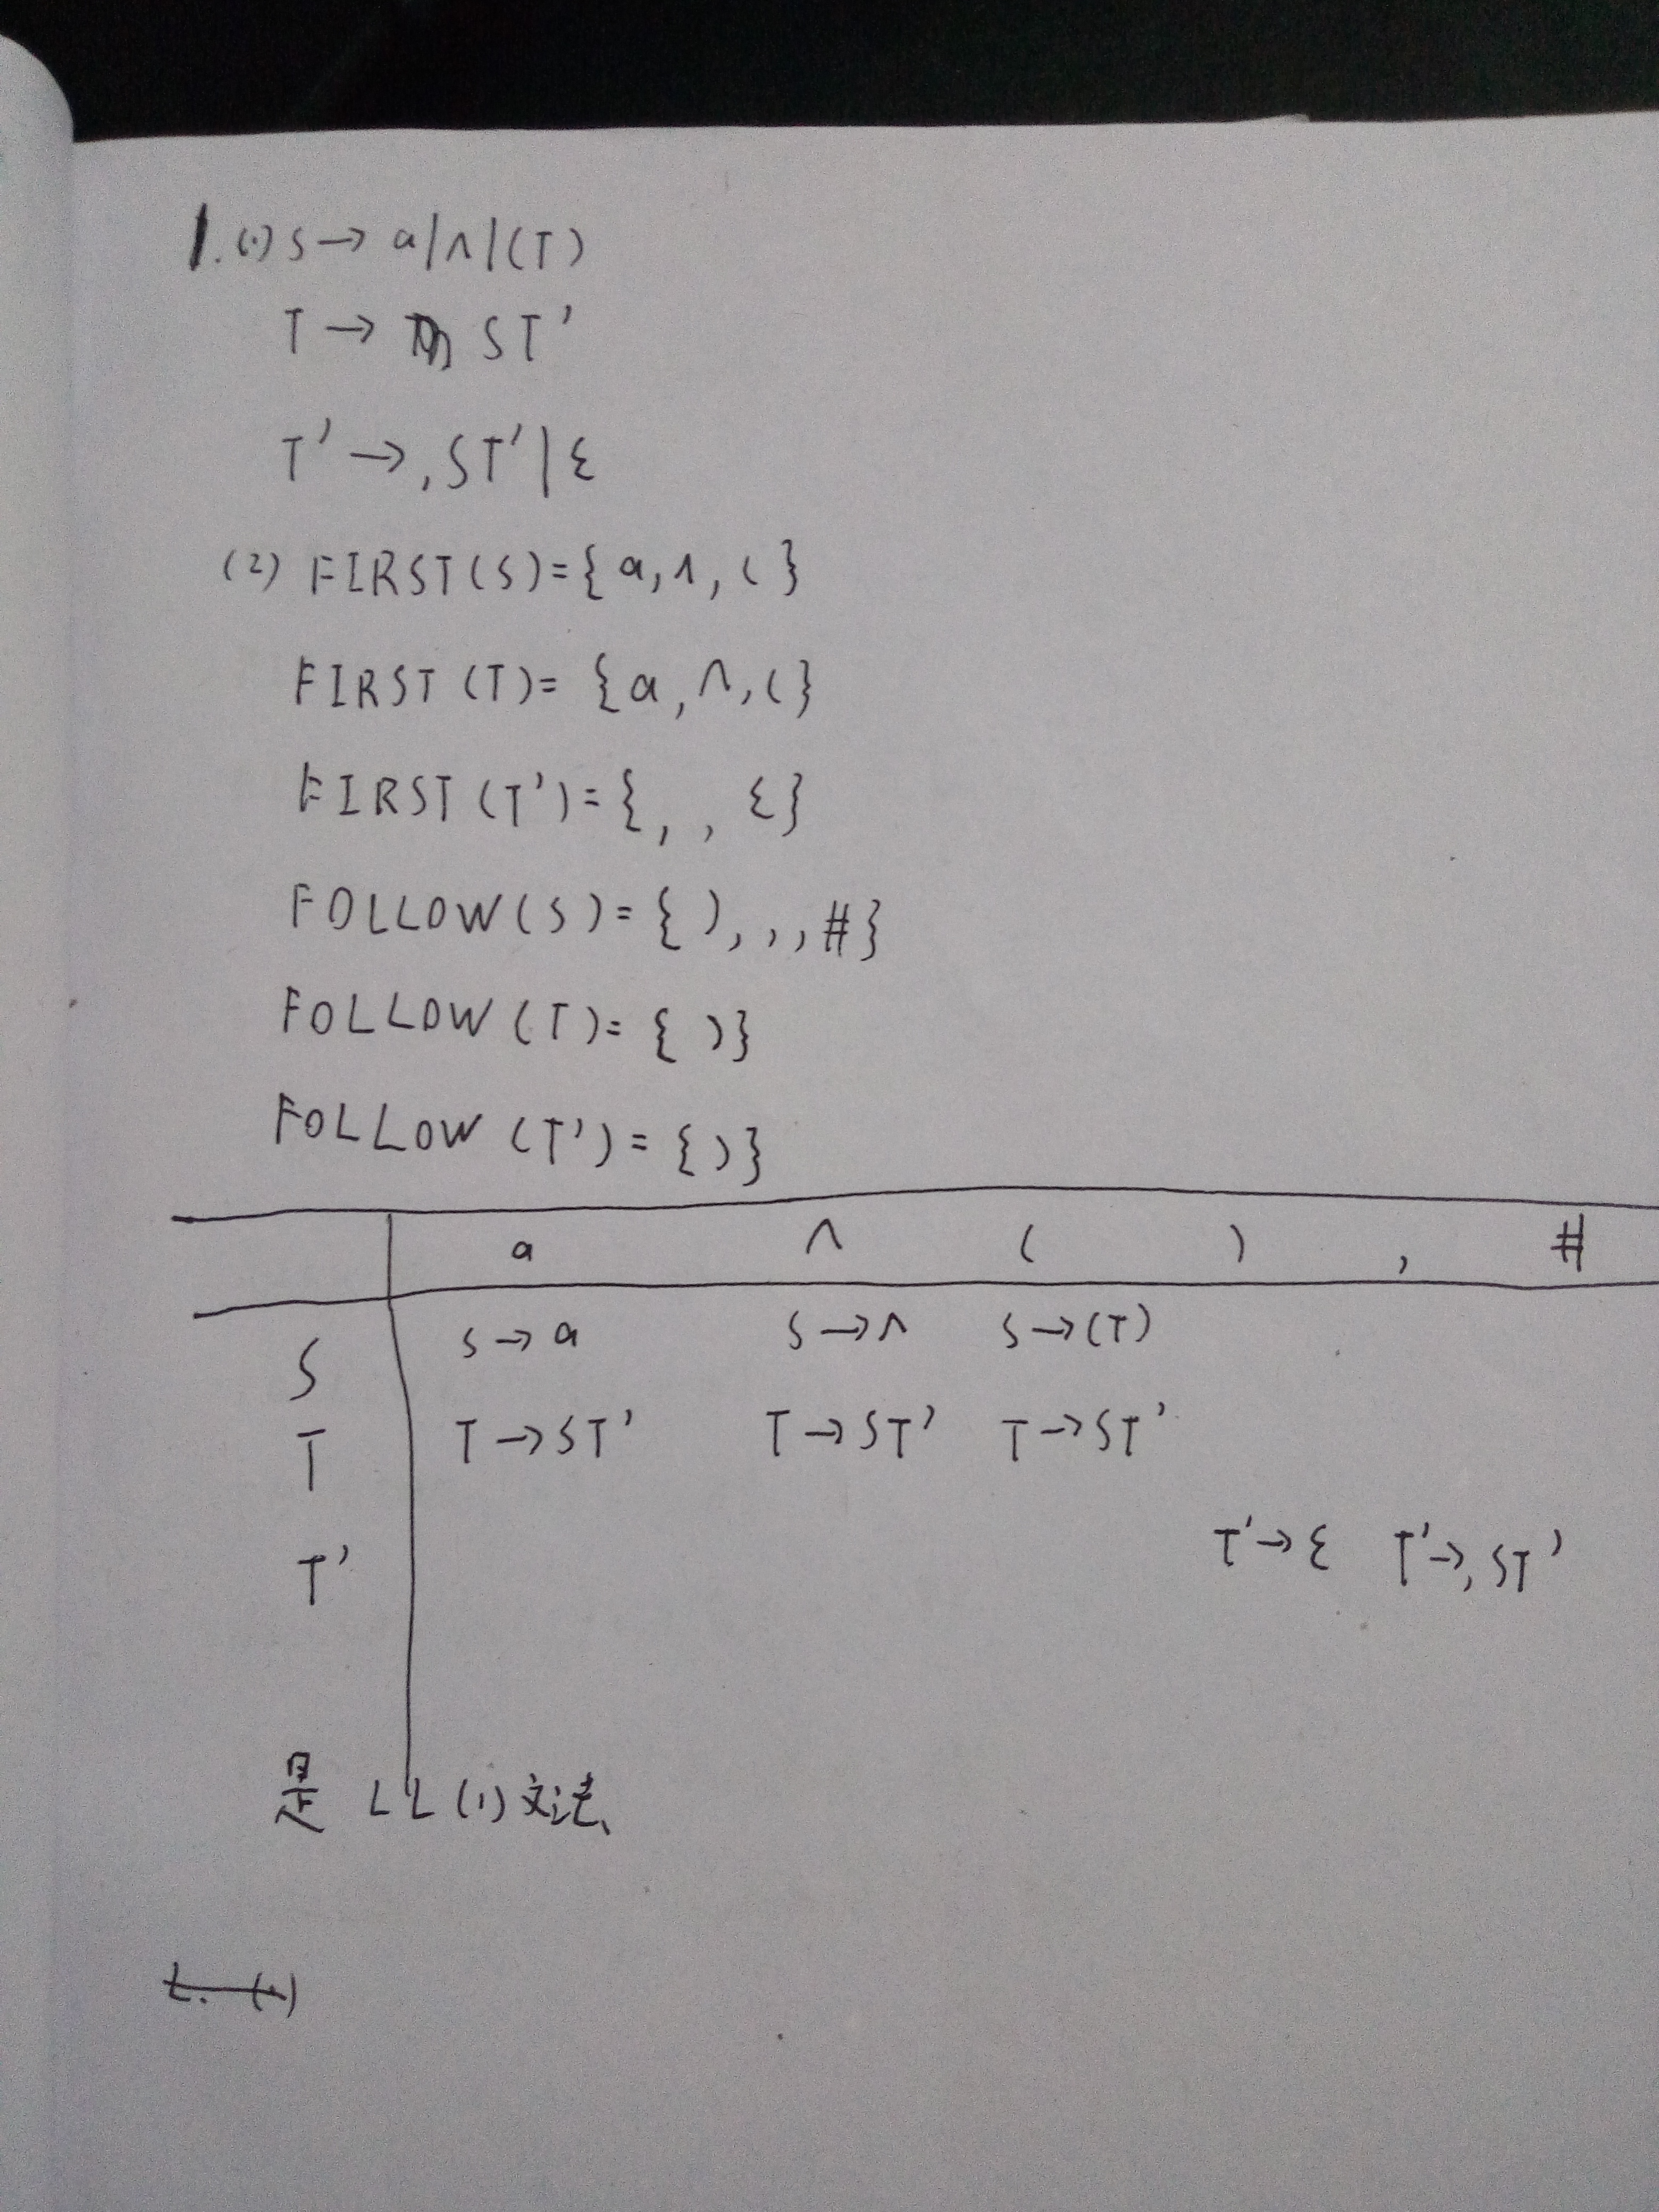 1. (1) S → a|∧|(T)
T → ST'
T' → ,ST'|ε
(2) FIRST(S)={a,∧,(}
FIRST(T)={a,∧,(}
FIRST(T')={, , ε}
FOLLOW(S)={),,,#}
FOLLOW(T)={)}
FOLLOW(T')={)}
a ∧ ( ) , #
S S→a S→∧ S→(T)
T T→ST' T→ST' T→ST'
T' T'→ε T'→,ST'
是 LL(1)文法